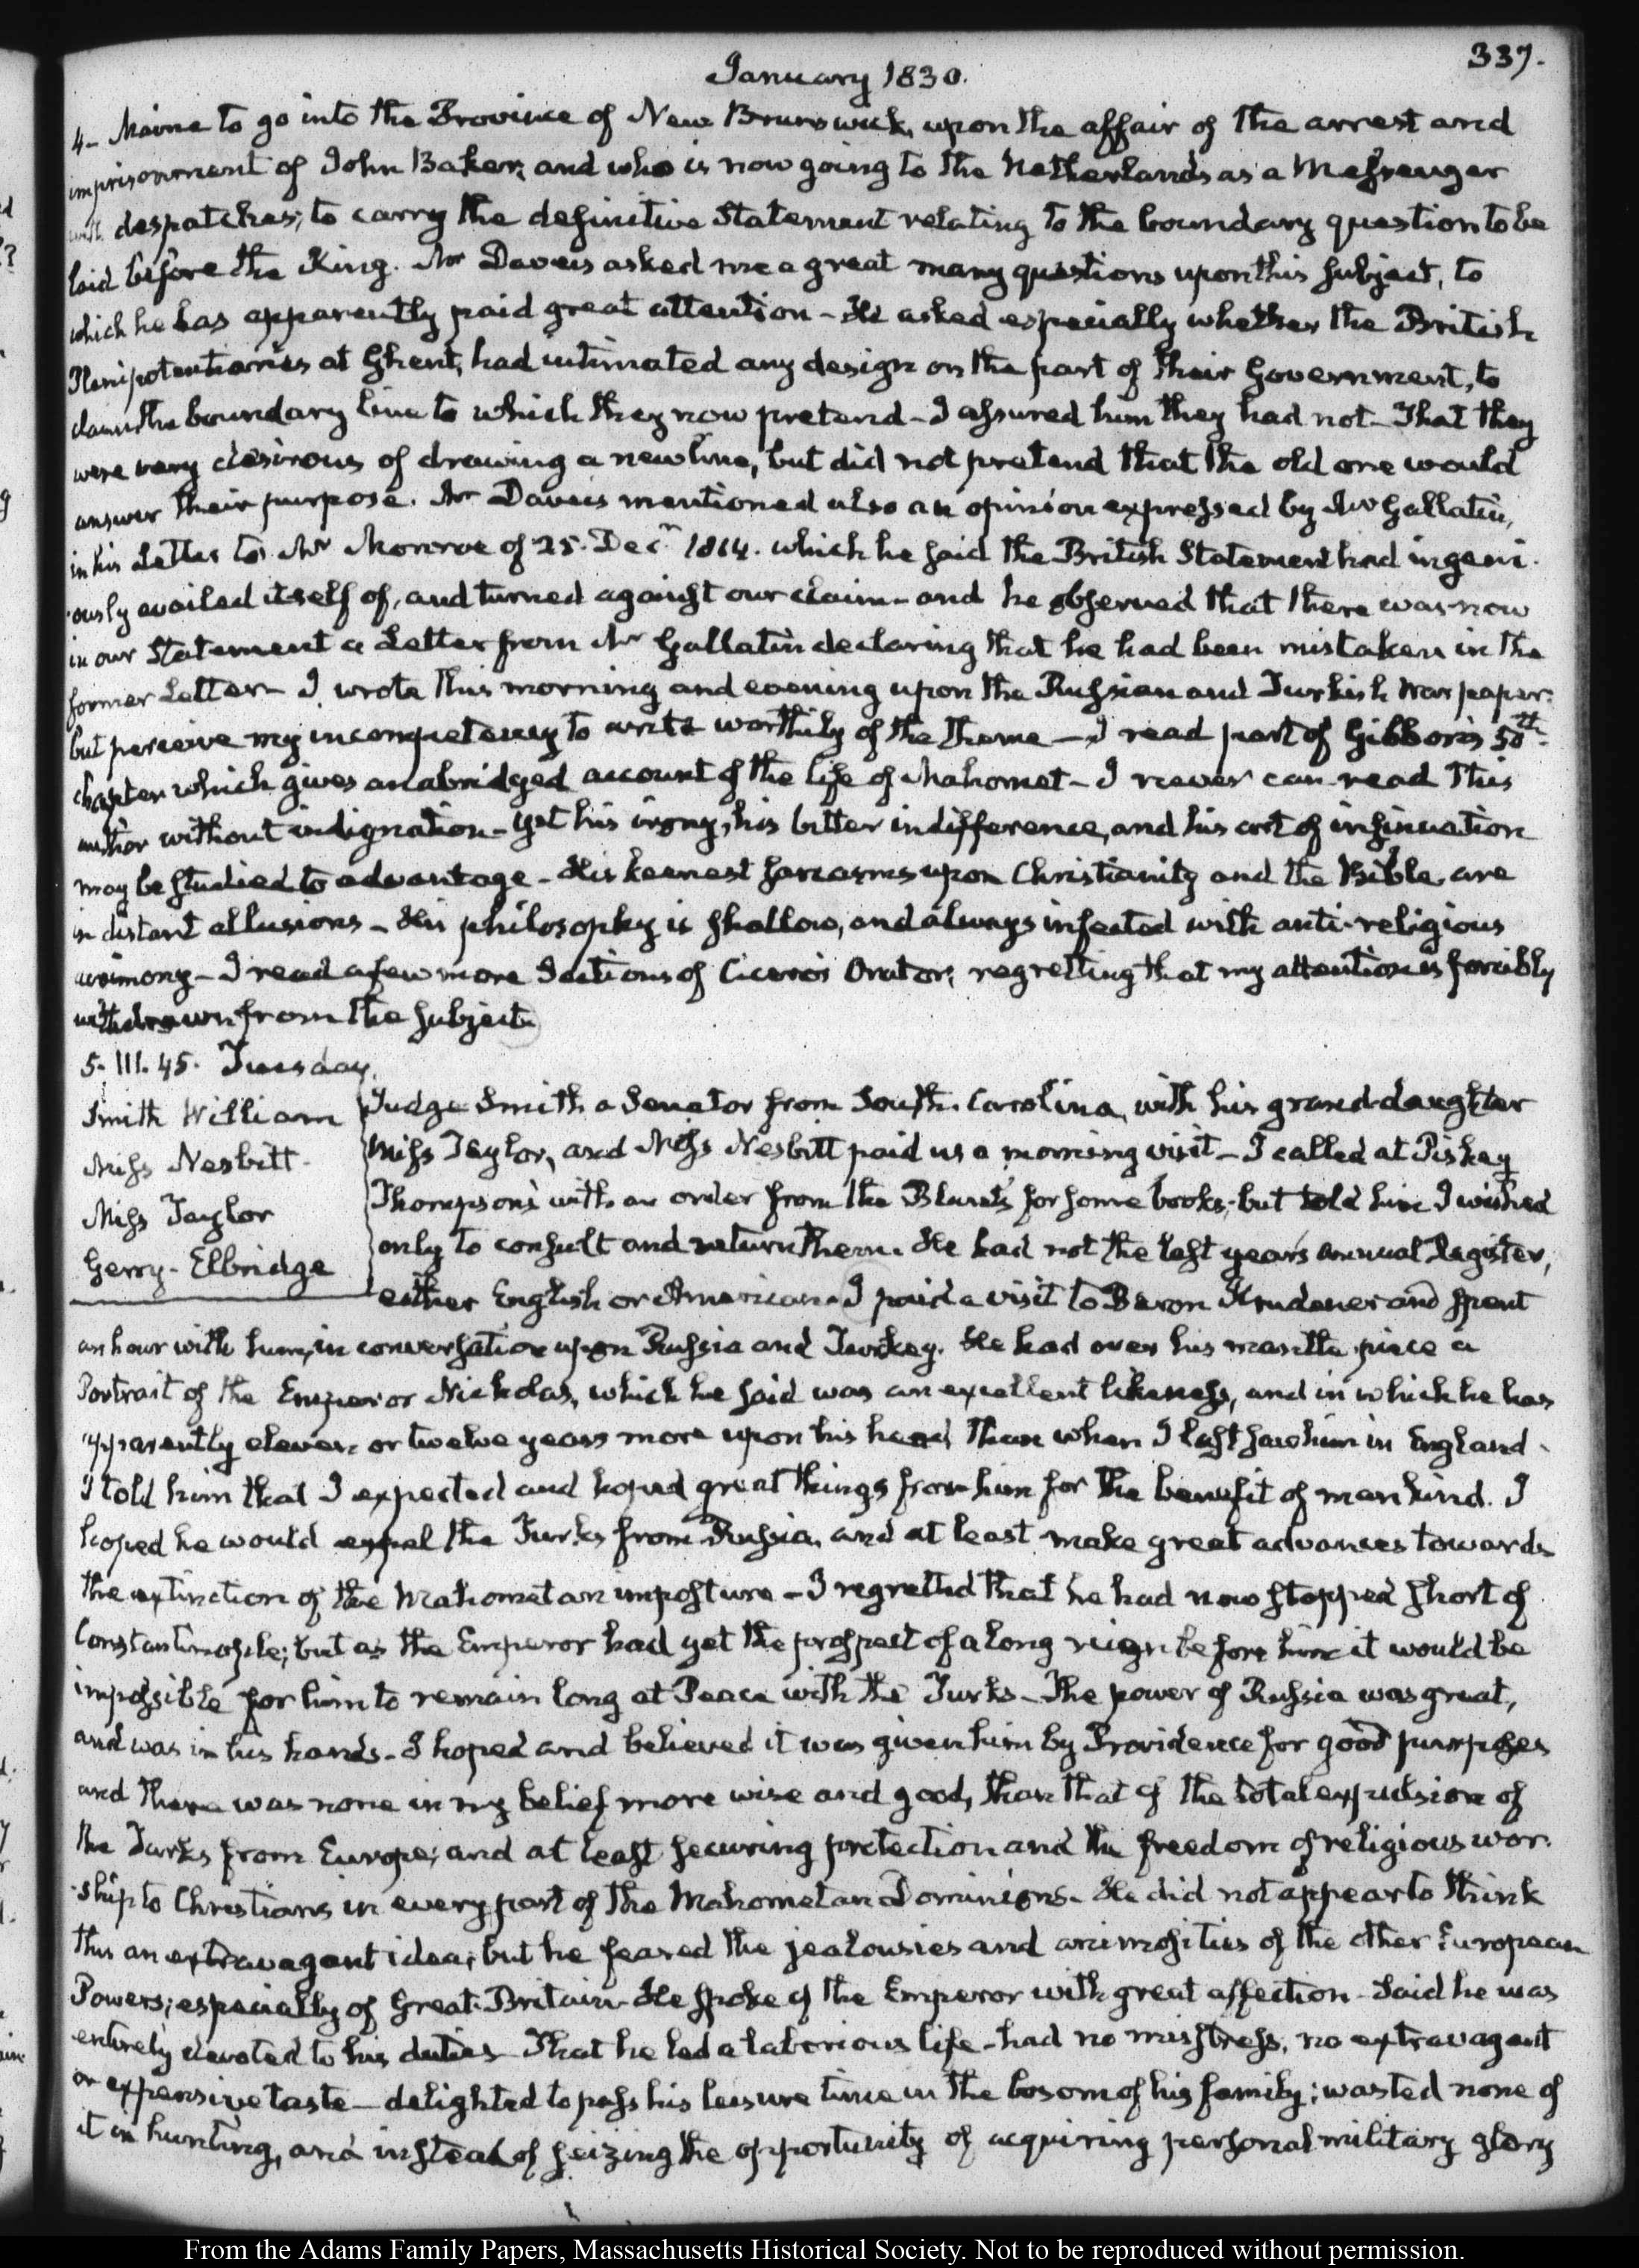 337.
January 1830.
4- Maine to go into the Province of New Brunswick, upon the affair of the arrest and
imprisonment of John Baker; and who is now going to the Netherlands as a Messenger
with despatches; to carry the definitive Statement relating to the boundary question to be
laid before the King. Mr Daveis asked me a great many questions upon this subject, to
which he has apparently paid great attention - He asked especially whether the British
Plenipotentiaries at Ghent, had intimated any design on the part of their Government, to
claim the boundary line to which they now pretend - I assured him they had not - That they
were very desirous of drawing a new line, but did not pretend that the old one would
answer their purpose. Mr Daveis mentioned also an opinion expressed by Mr Gallatin,
in his Letter to Mr Monroe of 25. Decr 1814. which he said the British Statement had ingeni-
-ously availed itself of, and turned against our claim - and he observed that there was now
in our Statement a Letter from Mr Gallatin declaring that he had been mistaken in the
former Letter - I wrote this morning and evening upon the Russian and Turkish War paper:
but perceive my incompetency to write worthily of the theme - I read part of Gibbon's 50th
chapter which gives an abridged account of the life of Mahomet - I never can read this
author without indignation - yet his irony, his bitter indifference, and his art of insinuation
may be studied to advantage - His keenest sarcasms upon Christianity and the Bible are
in distant allusions - His philosophy is shallow, and always infected with anti-religious
acrimony - I read a few more Sections of Cicero's Orator; regretting that my attention is forcibly
withdrawn from the subject.
5. III. 45. Tuesday.
Smith William
Miss Nesbitt.
Miss Taylor
Gerry - Elbridge
Judge Smith a Senator from South Carolina, with his granddaughter
Miss Taylor, and Miss Nesbitt paid us a morning visit - I called at Pishey
Thompson's with an order from the Blunts for some books; but told him I wished
only to consult and return them. He had not the last year's annual Register,
either English or American. I paid a visit to Baron Krudener and spent
an hour with him, in conversation upon Russia and Turkey. He had over his mantle piece a
Portrait of the Emperor Nicholas, which he said was an excellent likeness, and in which he has
apparently eleven or twelve years more upon his head than when I last saw him in England.
I told him that I expected and hoped great things from him for the benefit of mankind. I
hoped he would expel the Turks from Russia, and at least make great advances towards
the extinction of the Mahometan imposture - I regretted that he had now stopped short of
Constantinople; but as the Emperor had yet the prospect of a long reign before him it would be
impossible for him to remain long at Peace with the Turks - The power of Russia was great,
and was in his hands - I hoped and believed it was given him by Providence for good purposes
and there was none in my belief more wise and good, than that of the total expulsion of
the Turks from Europe; and at least securing protection and the freedom of religious wor-
-ship to Christians in every part of the Mahometan Dominions. He did not appear to think
this an extravagant idea; but he feared the jealousies and animosities of the other European
Powers; especially of Great-Britain - He spoke of the Emperor with great affection - Said he was
entirely devoted to his duties - That he led a laborious life - had no mistress, no extravagant
or expensive taste - delighted to pass his leisure time in the bosom of his family; wasted none of
it in hunting, and instead of seizing the opportunity of acquiring personal military glory
From the Adams Family Papers, Massachusetts Historical Society. Not to be reproduced without permission.